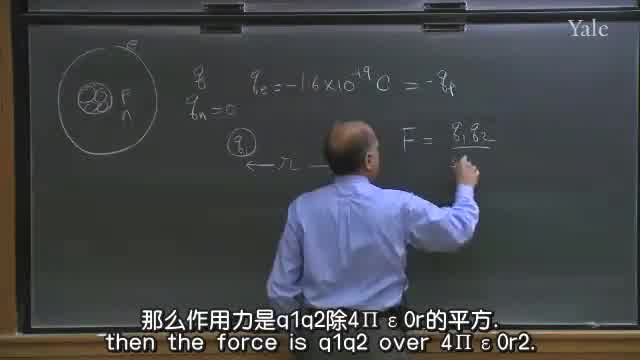 Yale
e
P
n
q
q_e = -1.6 × 10^-19 C = -q_p
q_n = 0
q_1
← r
F = q_1 q_2
那么作用力是q1q2除4Πε0r的平方.
then the force is q1q2 over 4Πε0r2.